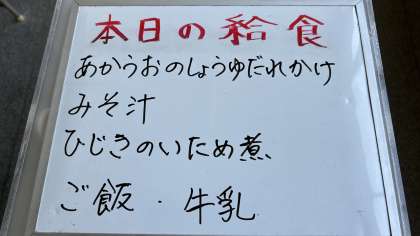 本日の給食
あかうおのしょうゆだれかけ
みそ汁
ひじきのいため煮
ご飯・牛乳